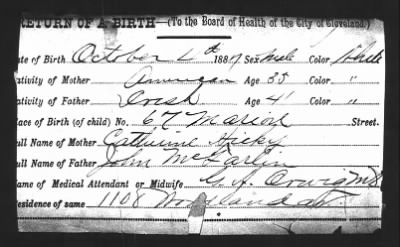 RETURN OF A BIRTH—(To the Board of Health of the City of Cleveland.)
ate of Birth October 4th 1887 Sex Male Color White
ativity of Mother American Age 35 Color "
ativity of Father Irish Age 41 Color "
lace of Birth (of child) No. 67 Marion Street.
ull Name of Mother Catherine Hicky
ull Name of Father John McGarlin
ame of Medical Attendant or Midwife C. A. Orwig M D
esidence of same 1108 Woodland av.